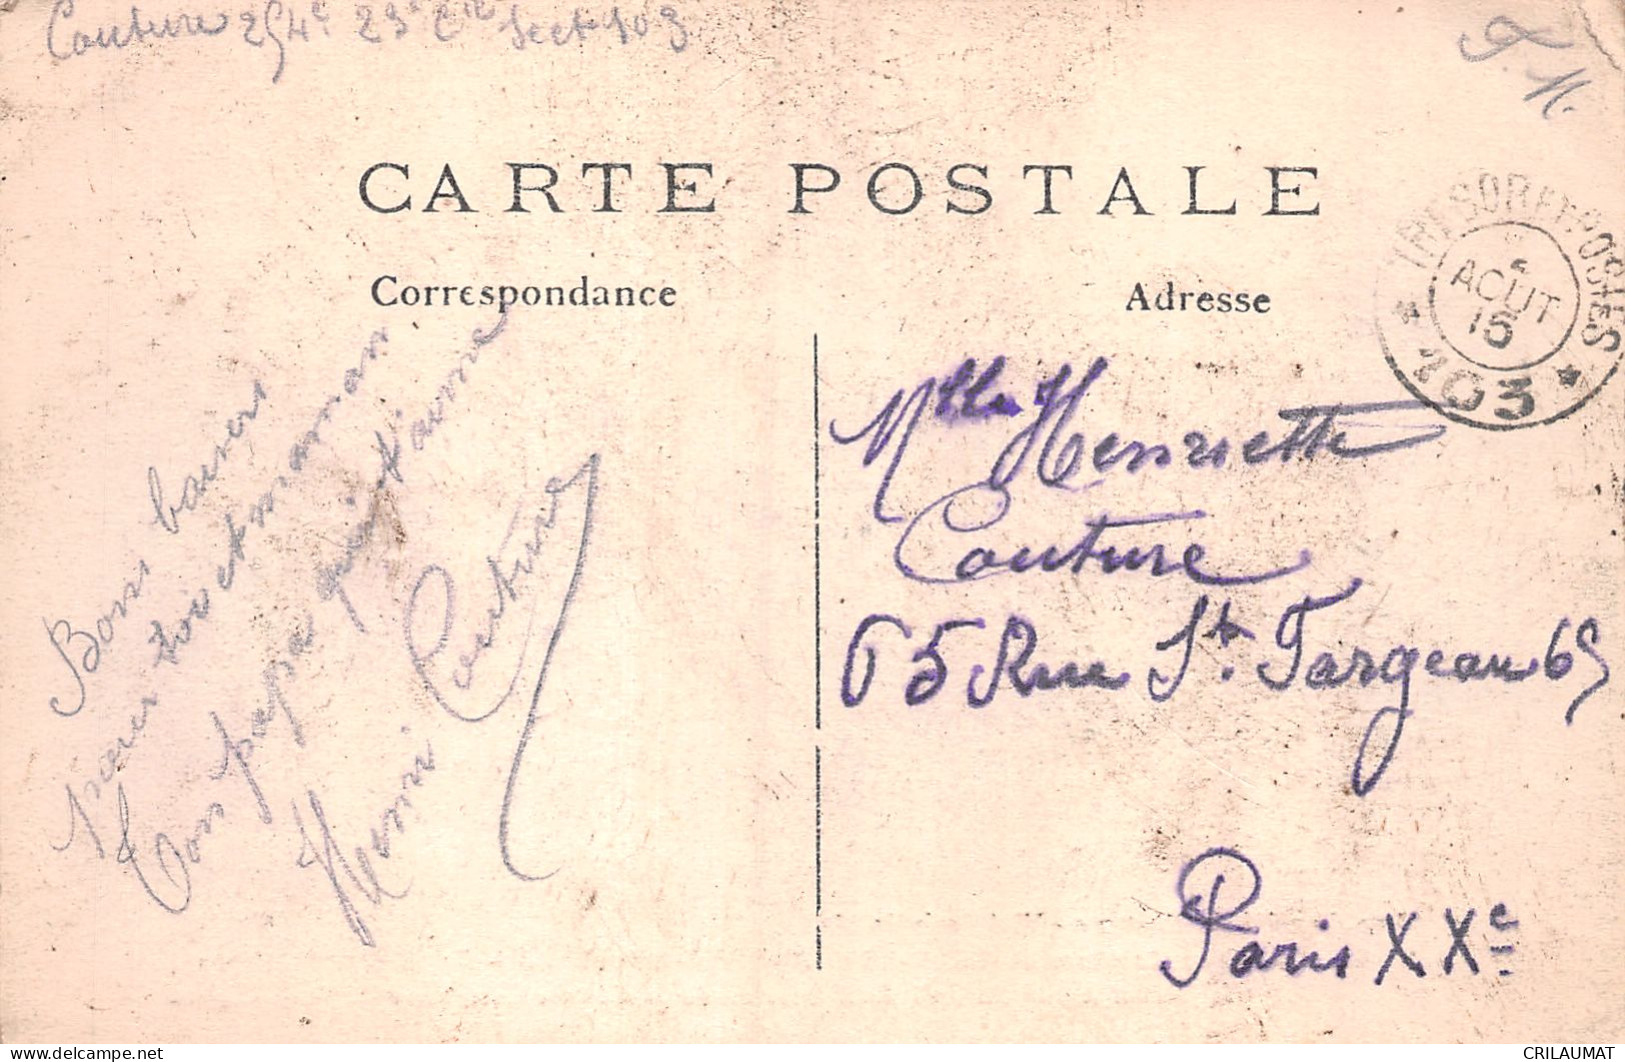 Couture 254e 23e Cie Sect 103
F. M.
CARTE POSTALE
Correspondance
Adresse
TRESOR ET POSTES
AOUT
15
* 103 *
Bons baisers
pour toi et maman
Ton papa qui t'aime
Henri Couture
Mlle Henriette
Couture
65 Rue St. Fargeau 65
Paris XXe
delcampe.net
CRILAUMAT